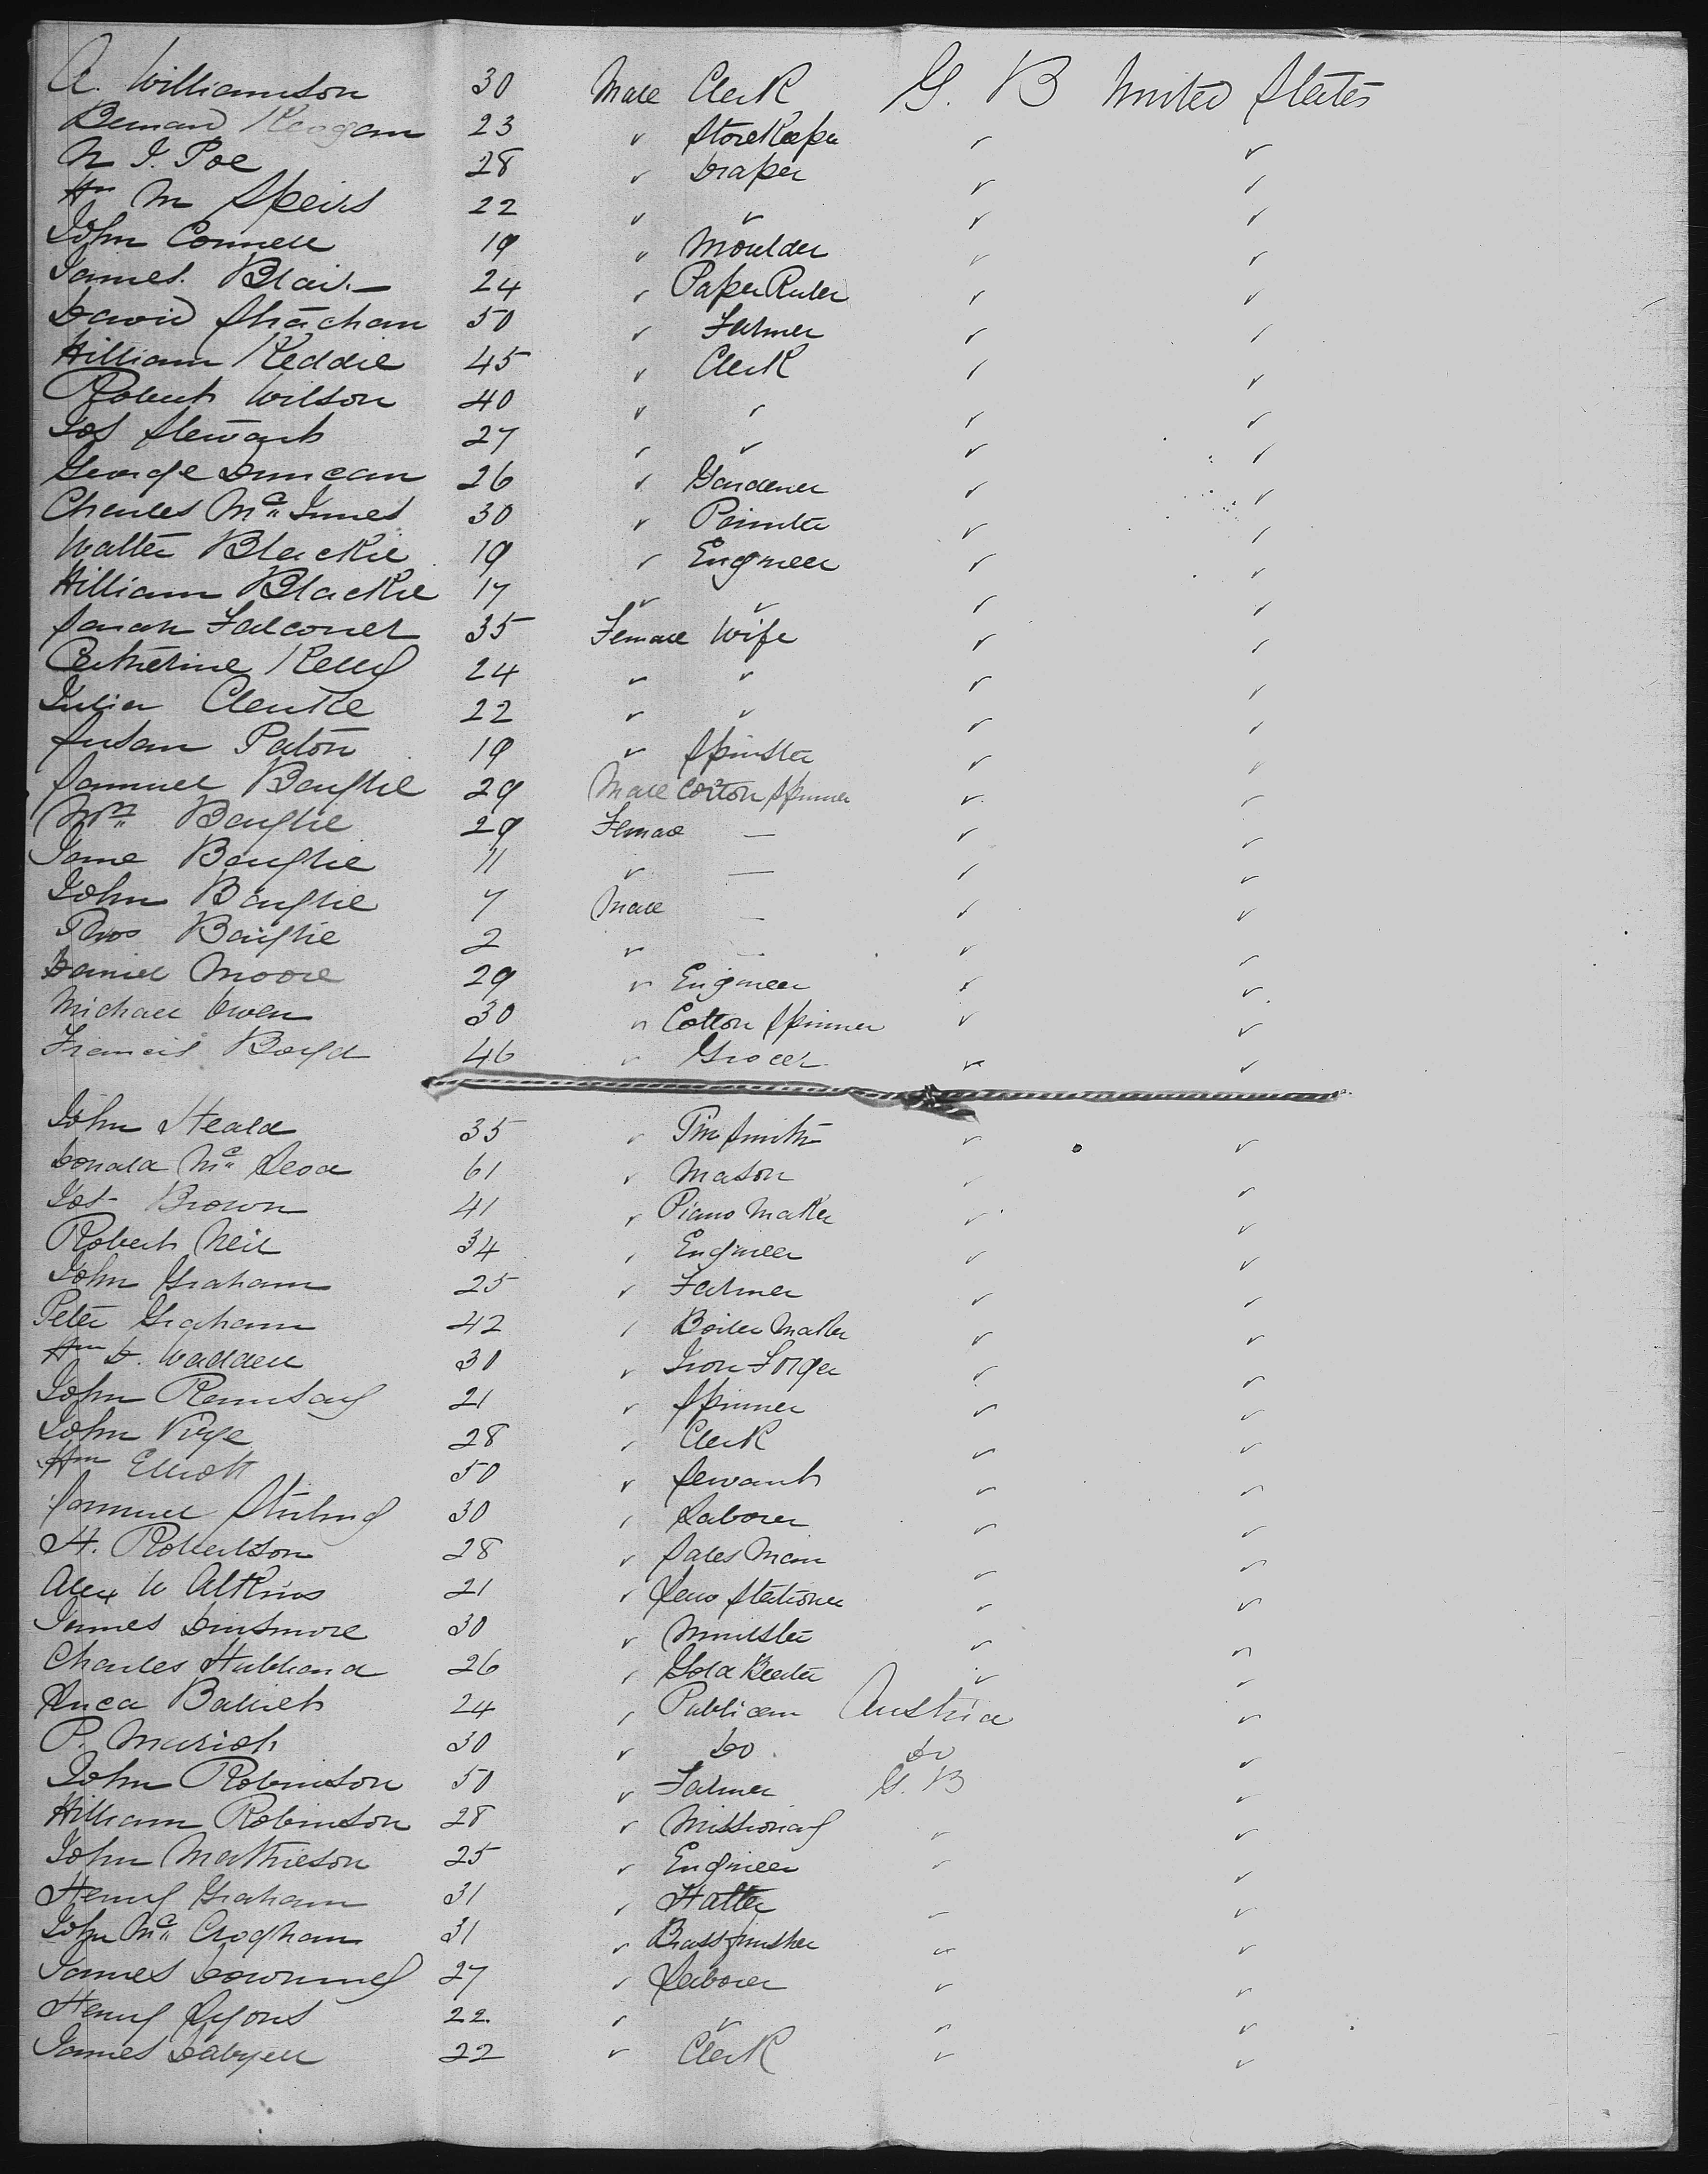 A. Williamson 30 Male Clerk G. B United States
Bernard Keogan 23 " StoreKeeper " "
N I. Poe 28 " Draper " "
Wm M Speirs 22 " " " "
John Connell 19 " Moulder " "
James. Blair 24 " Paper Ruler " "
David Strachan 50 " Farmer " "
William Keddie 45 " Clerk " "
Robert Wilson 40 " " " "
Jos Stewart 27 " " " "
George Duncan 26 " Gardener " "
Charles Mc Innes 30 " Painter " "
Walter Blackie 19 " Engineer " "
William Blackie 17 " " " "
Sarah Falconer 35 Female Wife " "
Catherine Kelly 24 " " " "
Julia Clarke 22 " " " "
Susan Paton 19 " Spinster " "
Samuel Baughie 29 Male Cotton Spinner " "
Mrs Baughie 29 Female — " "
Jane Baughie 11 " — " "
John Baughie 7 Male — " "
Thos Baughie 2 " — " "
Daniel Moore 29 " Engineer " "
Michael Owen 30 " Cotton Spinner " "
Francis Boyd 46 " Grocer " "
John Heald 35 " Tin Smith " "
Donald Mc Leod 61 " Mason " "
Jos Brown 41 " Piano Maker " "
Robert Neil 34 " Engineer " "
John Graham 25 " Farmer " "
Peter Graham 42 " Boiler Maker " "
Wm D. Waddell 30 " Iron Forger " "
John Ramsay 21 " Spinner " "
John Pirge 28 " Clerk " "
Wm Elliott 50 " Servant " "
Samuel Stirling 30 " Laborer " "
H. Robertson 28 " Sales Man " "
Alex W Atkins 21 " Law Stationer " "
James Dinsmore 30 " Minister " "
Charles Hubbard 26 " Gold Beater " "
Luca Balich 24 " Publican Austria "
P. Marich 30 " Do Do "
John Robinson 50 " Farmer G. B "
William Robinson 28 " Missionary " "
John Mathieson 25 " Engineer " "
Henry Graham 31 " Hatter " "
John Mc Croghan 31 " Brass finisher " "
James Downing 27 " Laborer " "
Henry Lyons 22 " " " "
James Dalzell 22 " Clerk " "